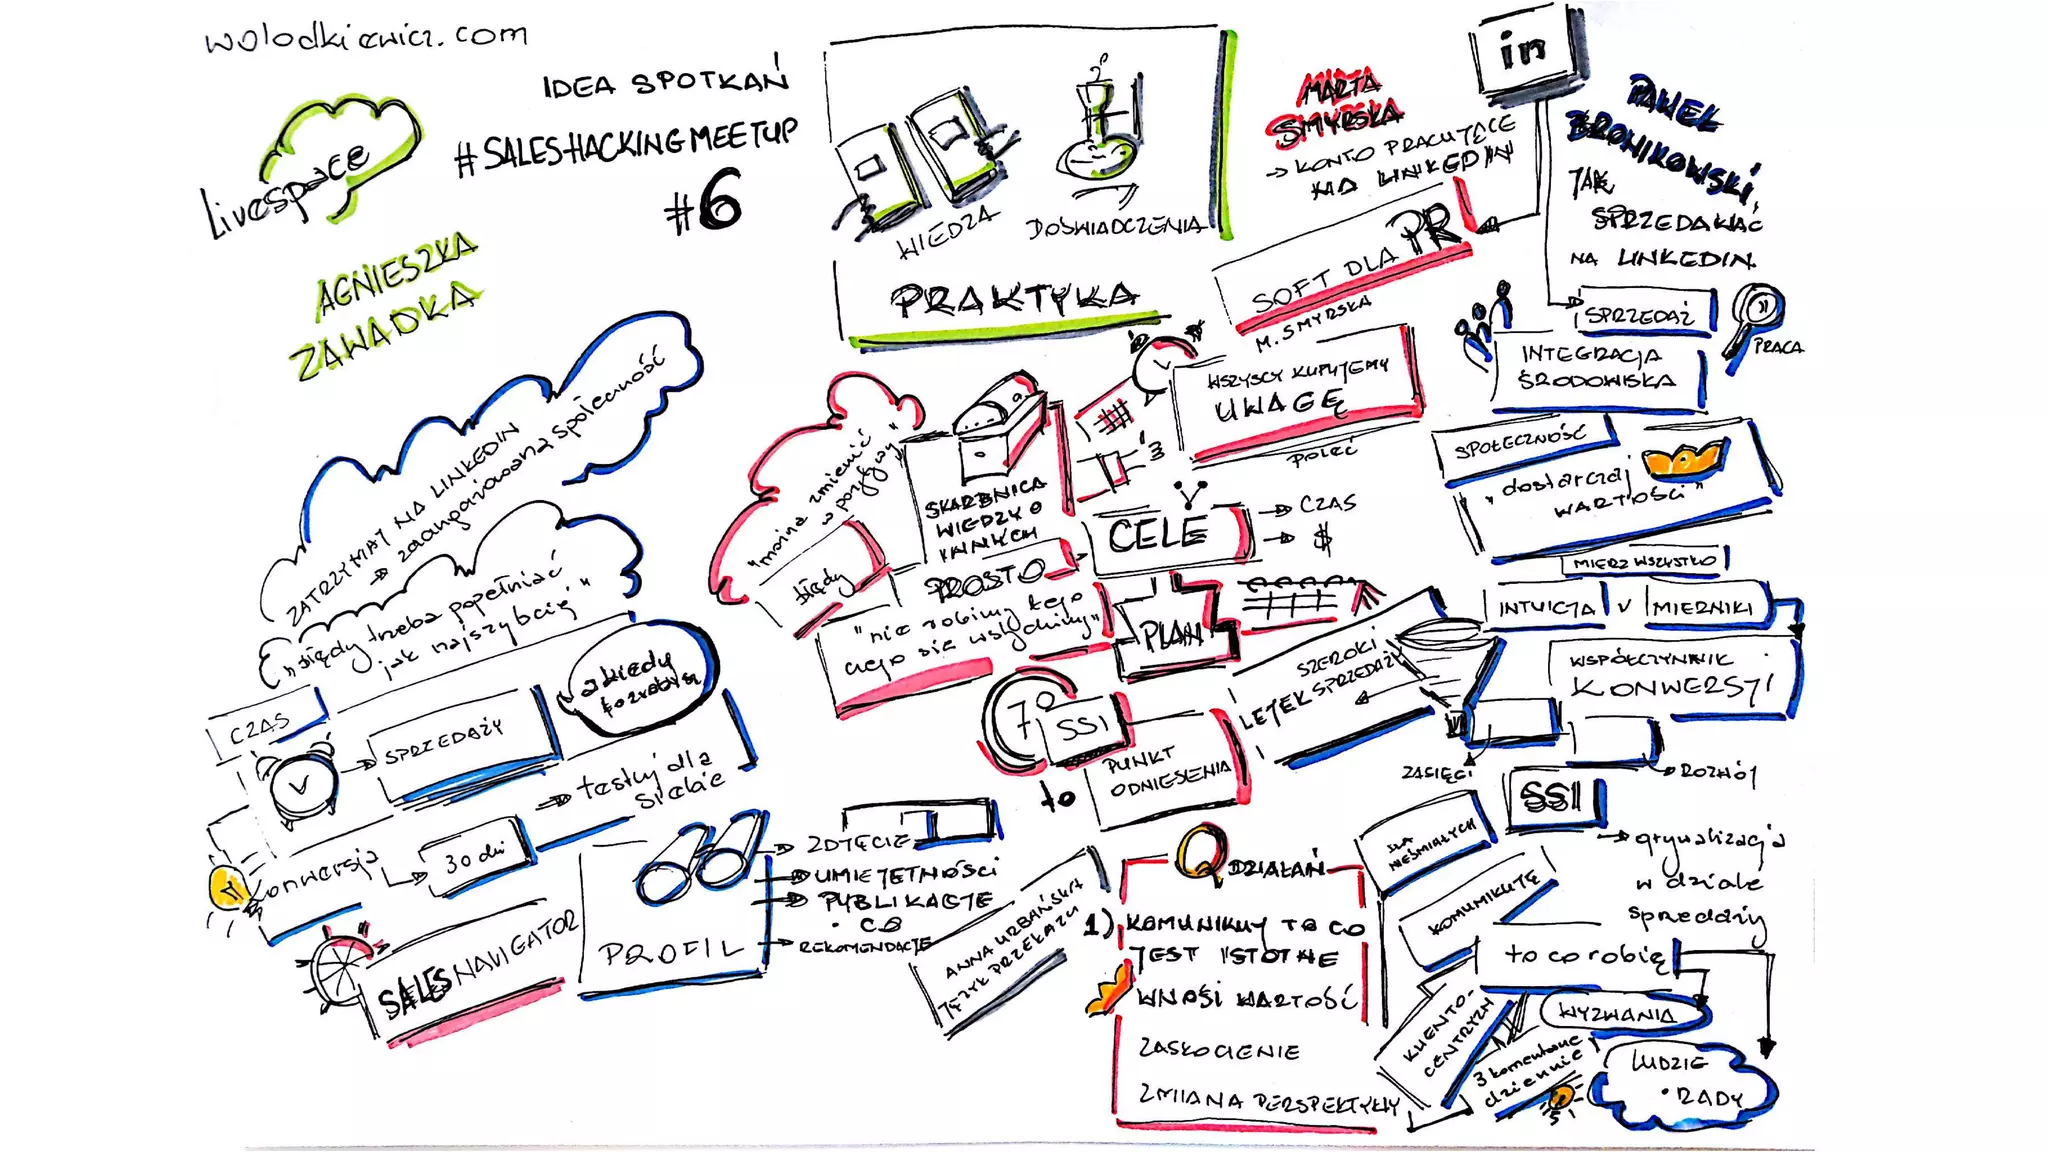 wolodkiewicz.com
IDEA SPOTKAŃ
#SALESHACKINGMEETUP
#6
livespace
AGNIESZKA
ZAWADKA
WIEDZA
DOŚWIADCZENIA
PRAKTYKA
MARTA
SMYRSKA
→ KONTO PRACUJĄCE
NA LINKEDIN
in
PAWEŁ
BRONIKOWSKI
JAK
SPRZEDAWAĆ
NA LINKEDIN
SOFT DLA PR
M. SMYRSKA
SPRZEDAŻ
PRACA
INTEGRACJA
ŚRODOWISKA
WSZYSCY KUPUJEMY
UWAGĘ
POLEĆ
SPOŁECZNOŚĆ
"dostarczaj
WARTOŚCI"
MIERZ WSZYSTKO
INTUICJA V MIERNIKI
WSPÓŁCZYNNIK
KONWERSJI
ZATRZYMAJ NA LINKEDIN
→ zaangażowana społeczność
"błędy trzeba popełniać
jak najszybciej"
CZAS
SPRZEDAŻY
testuj dla
siebie
konwersja
30 dni
SALES NAVIGATOR
PROFIL
ZDJĘCIE
UMIEJĘTNOŚCI
PUBLIKACJE
CO
REKOMENDACJE
"można zmienić
w pozytywy"
błędy
SKARBNICA
WIEDZY O
INNYCH
PROSTO
"nie robimy tego
czego się wstydzimy"
3
CELE
→ CZAS
→ $
PLAN
7°
SSI
to
PUNKT
ODNIESIENIA
SZEROKI
LEJEK SPRZEDAŻY
ZASIĘGI
ROZWÓJ
SSI
→ grywalizacja
w dziale
sprzedaży
DLA
NIEŚMIAŁYCH
KOMUNIKUJĘ
to co robię
WYZWANIA
KLIENTO-
CENTRYZM
3 komentarze
dziennie
LUDZIE
• RADY
ANNA URBAŃSKA
JĘZYK PRZEKAZU
DZIAŁAŃ
1) KOMUNIKUJ TO CO
JEST ISTOTNE
WNOŚI WARTOŚĆ
ZASKOCIENIE
ZMIANA PERSPEKTYWY